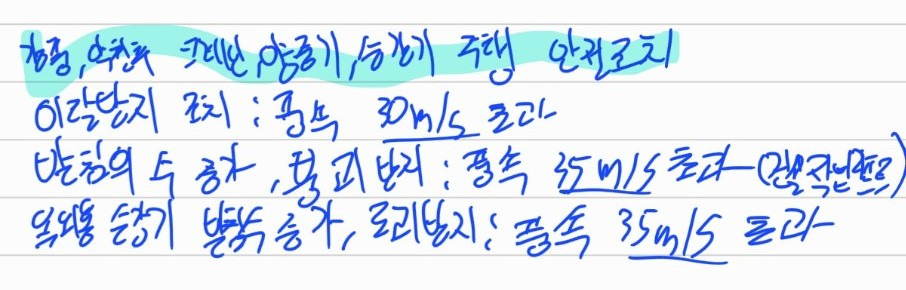 강풍, 악천후 크레인, 양중기, 승강기 주행 안전조치
이탈방지 조치 : 풍속 30m/s 초과
받침의 수 증가, 붕괴 방지 : 풍속 35m/s 초과
옥외용 승강기 받침수 증가, 도괴방지 : 풍속 35m/s 초과